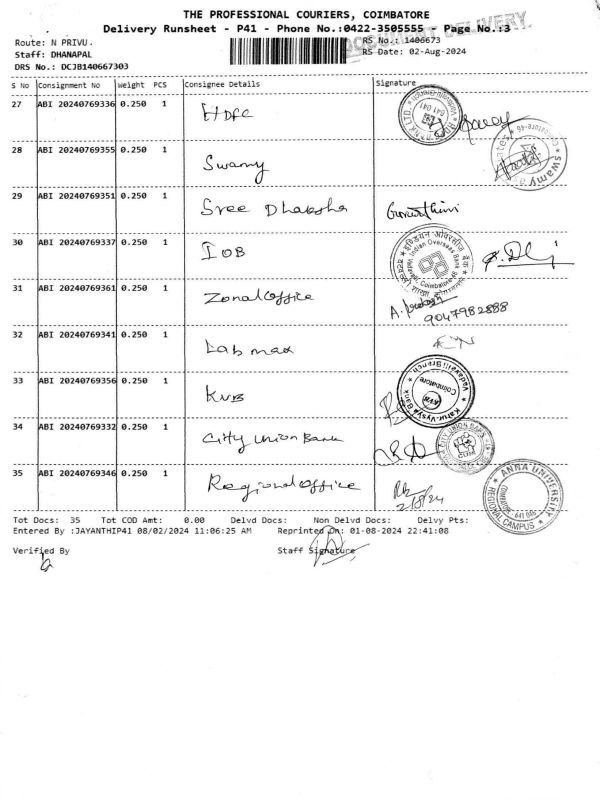 THE PROFESSIONAL COURIERS, COIMBATORE
Delivery Runsheet - P41 - Phone No.:0422-3505555 - Page No.:3
DELIVERY
Route: N PRIVU.
RS No.: 1406673
Staff: DHANAPAL
RS Date: 02-Aug-2024
DRS No.: DCJB140667303
S No Consignment No Weight PCS Consignee Details Signature
27 ABI 20240769336 0.250 1 HDFC
641 041
28 ABI 20240769355 0.250 1 Swamy
Coimbatore-46
swamy
29 ABI 20240769351 0.250 1 Sree Dhaksha
30 ABI 20240769337 0.250 1 IOB
Indian Overseas Bank
Coimbatore
31 ABI 20240769361 0.250 1 Zonal Office
9047982888
32 ABI 20240769341 0.250 1 Lab max
33 ABI 20240769356 0.250 1 KVB
Vadavalli Branch
Coimbatore
KVB
Karur Vysya Bank
34 ABI 20240769332 0.250 1 City Union Bank
CITY UNION BANK
35 ABI 20240769346 0.250 1 Regional Office
2/8/24
ANNA UNIVERSITY
REGIONAL CAMPUS
COIMBATORE - 641 046
Tot Docs: 35 Tot COD Amt: 0.00 Delvd Docs: Non Delvd Docs: Delvy Pts:
Entered By :JAYANTHIP41 08/02/2024 11:06:25 AM Reprinted On: 01-08-2024 22:41:08
Verified By Staff Signature